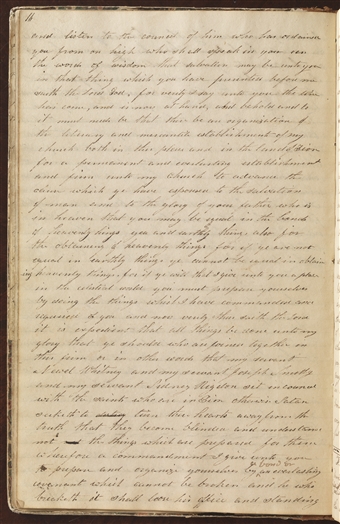 16
and listen to the council of him who has ordained
you from on high who shall speak in your ears
the words of wisdom that salvation may be unto you
in that thing which you have presented before me
saith the Lord God, for verily I say unto you the time
has come, and is now at hand, and behold and lo
it must needs be that there be an organization of
the literary and mercantile establishment of my
church both in this place and in the land of Zion
for a permanent and everlasting establishment
and firm unto my church to advance the
cause which ye have espoused to the salvation
of man and to the glory of your father who is
in heaven that you may be equal in the bands
of heavenly things yea and earthly things also for
the obtaining of heavenly things for if ye are not
equal in earthly things ye cannot be equal in obtain
ing heavenly things for if ye will that I give unto you a place
in the celestial world you must prepare yourselves
by doing the things which I have commanded and
required of you and now verily thus saith the Lord
it is expedient that all things be done unto my
glory that ye should who are joined together in
this firm or in other words that my servant
Newel Whitney and my servant Joseph Smith
and my servant Sidney Rigdon sit in council
with the saints who are in Zion otherwise Satan
seeketh to turn their hearts away from the
truth that they become blinded and understand
not the things which are prepared for them
wherefore a commandment I give unto you
to prepare and organize yourselves by an everlasting
covenant which cannot be broken and he who
breaketh it shall lose his office and standing